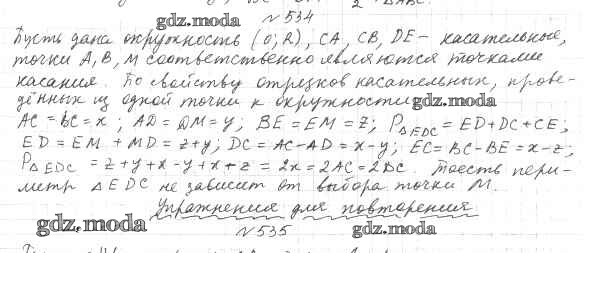 2 △ABC.
gdz.moda
№ 534
Пусть дана окружность (O; R), CA, CB, DE – касательные,
точки A, B, M соответственно являются точками
касания. По свойству отрезков касательных, прове-
дённых из одной точки к окружности gdz.moda
AC = BC = x; AD = DM = y; BE = EM = z; P△EDC = ED + DC + CE;
ED = EM + MD = z + y; DC = AC – AD = x – y; EC = BC – BE = x – z;
P△EDC = z + y + x – y + x + z = 2x = 2AC = 2BC. Тоесть пери-
метр △EDC не зависит от выбора точки M.
Упражнения для повторения
gdz.moda
№ 535
gdz.moda